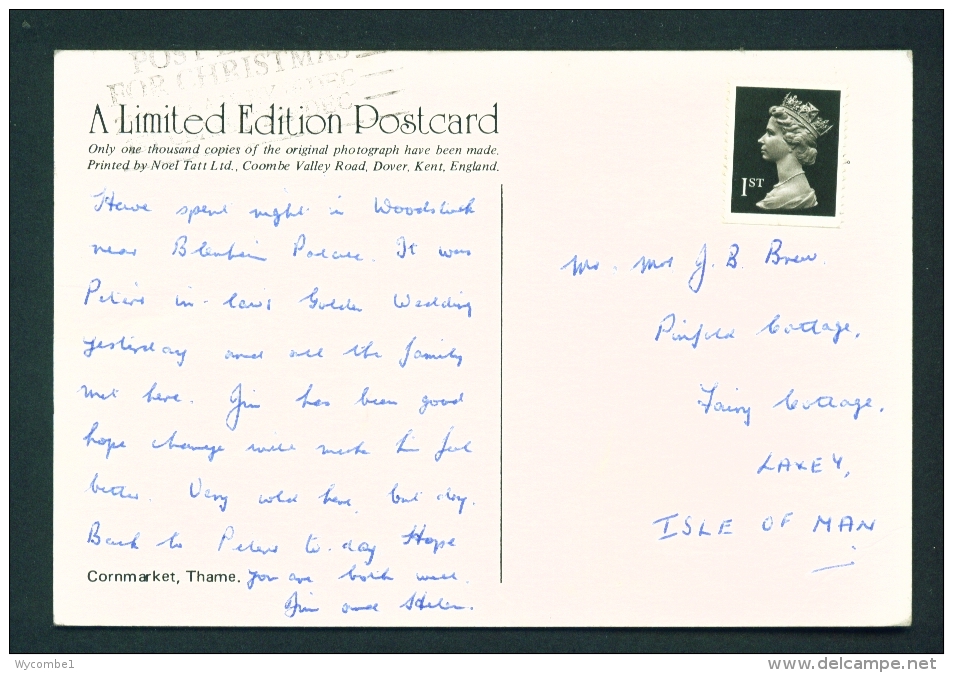 POST
FOR CHRISTMAS
DEC
A Limited Edition Postcard
Only one thousand copies of the original photograph have been made.
Printed by Noel Tatt Ltd., Coombe Valley Road, Dover, Kent, England.
1ST
Have spent night in Woodstock
near Blenheim Palace. It was
Peter's in-law's Golden Wedding
yesterday and all the family
met here. Jim has been good
hope change will make him feel
better. Very cold here, but dry.
Back to Peters to-day Hope
Cornmarket, Thame. you are both well.
Jim and Helen.
Mr. Mrs J. B. Brew.
Pinfold Cottage,
Fairy Cottage,
LAXEY,
ISLE OF MAN
Wycombe1
www.delcampe.net